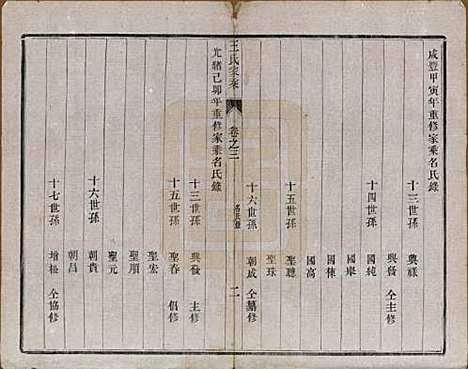 咸豐甲寅年重修家乘名氏錄
十三世孫 興祿
興發 仝主修
十四世孫 國純
國舉
國棟
國高
十五世孫 聖聰
聖珠
十六世孫 朝成 仝纂修
王氏家乘 卷之三 名氏錄 二
光緒己卯年重修家乘名氏錄
十三世孫 興發 主修
十五世孫 聖春 倡修
聖宏
聖順
聖元
十六世孫 朝貴
朝昌
十七世孫 增松 仝協修